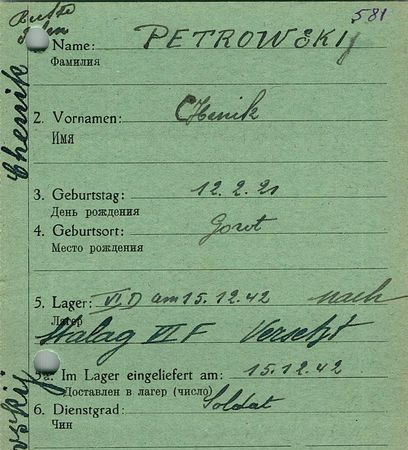 581
Name: PETROWSKIj
Фамилия
2. Vornamen: Chenik
Имя
3. Geburtstag: 12.2.21
День рождения
4. Geburtsort:
Место рождения
5. Lager: VI.D am 15.12.42 nach
Лагер
Stalag VI F Versetzt
5a. Im Lager eingeliefert am: 15.12.42
Доставлен в лагер (число)
6. Dienstgrad: Soldat
Чин
Chenik
wskij